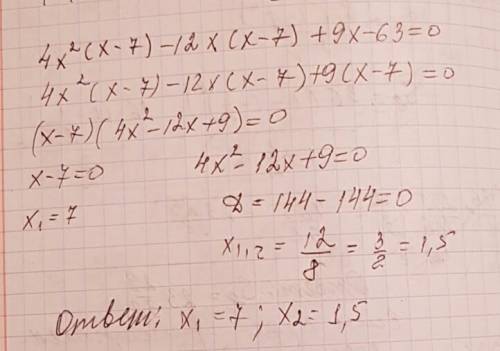 4x²(x-7)-12x(x-7)+9x-63=0
4x²(x-7)-12x(x-7)+9(x-7)=0
(x-7)(4x²-12x+9)=0
x-7=0 4x²-12x+9=0
x₁=7 D=144-144=0
x₁,₂=12/8=3/2=1,5
Ответ: x₁=7; x₂=1,5